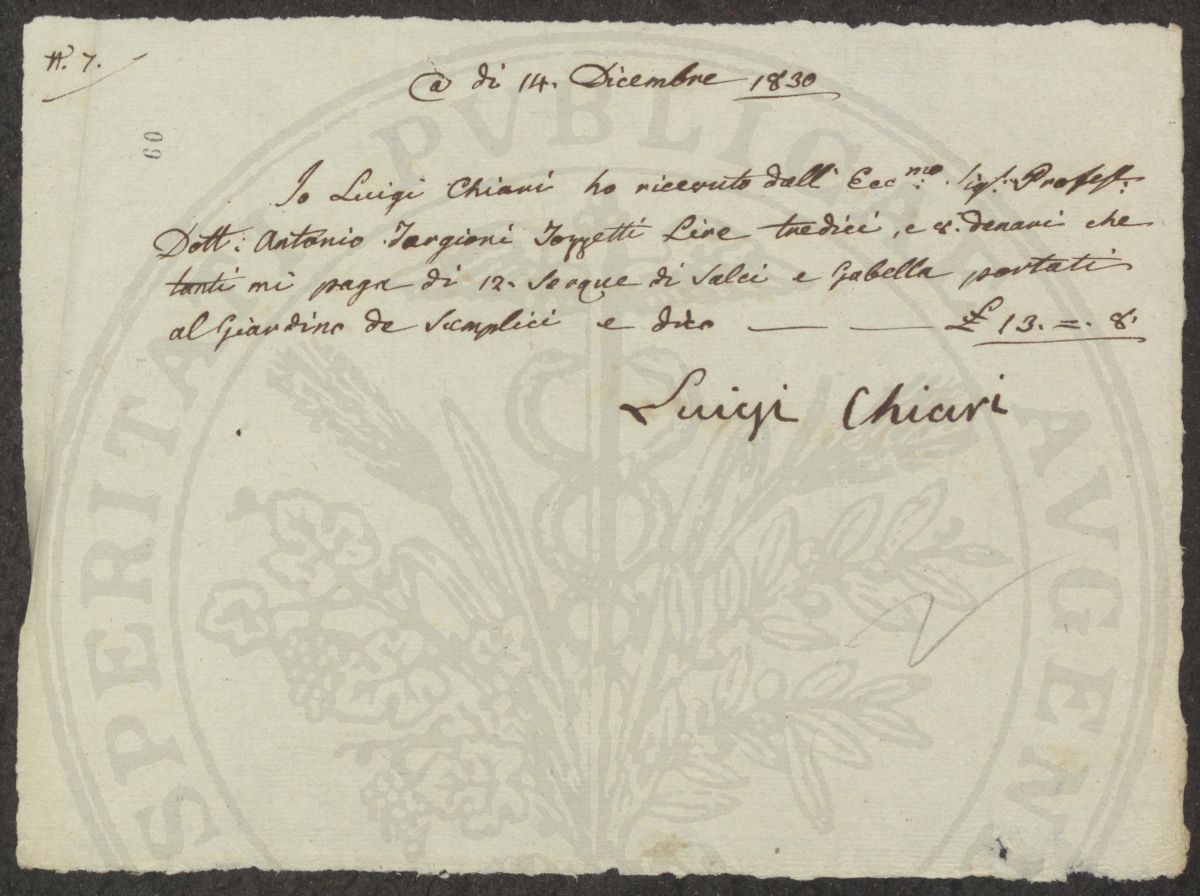 N. 7.
@ di 14. Dicembre 1830
60
Io Luigi Chiari ho ricevuto dall' Ecc.mo Sig.r Profess.
Dott: Antonio Targioni Tozzetti Lire tredici, e 8. denari che
tanti mi paga di 12. Serque di Salci e Gabella portati
al Giardino de Semplici e dico — — £ 13. =. 8.
Luigi Chiari
PROSPERITATI PVBLICAE AVGENDAE